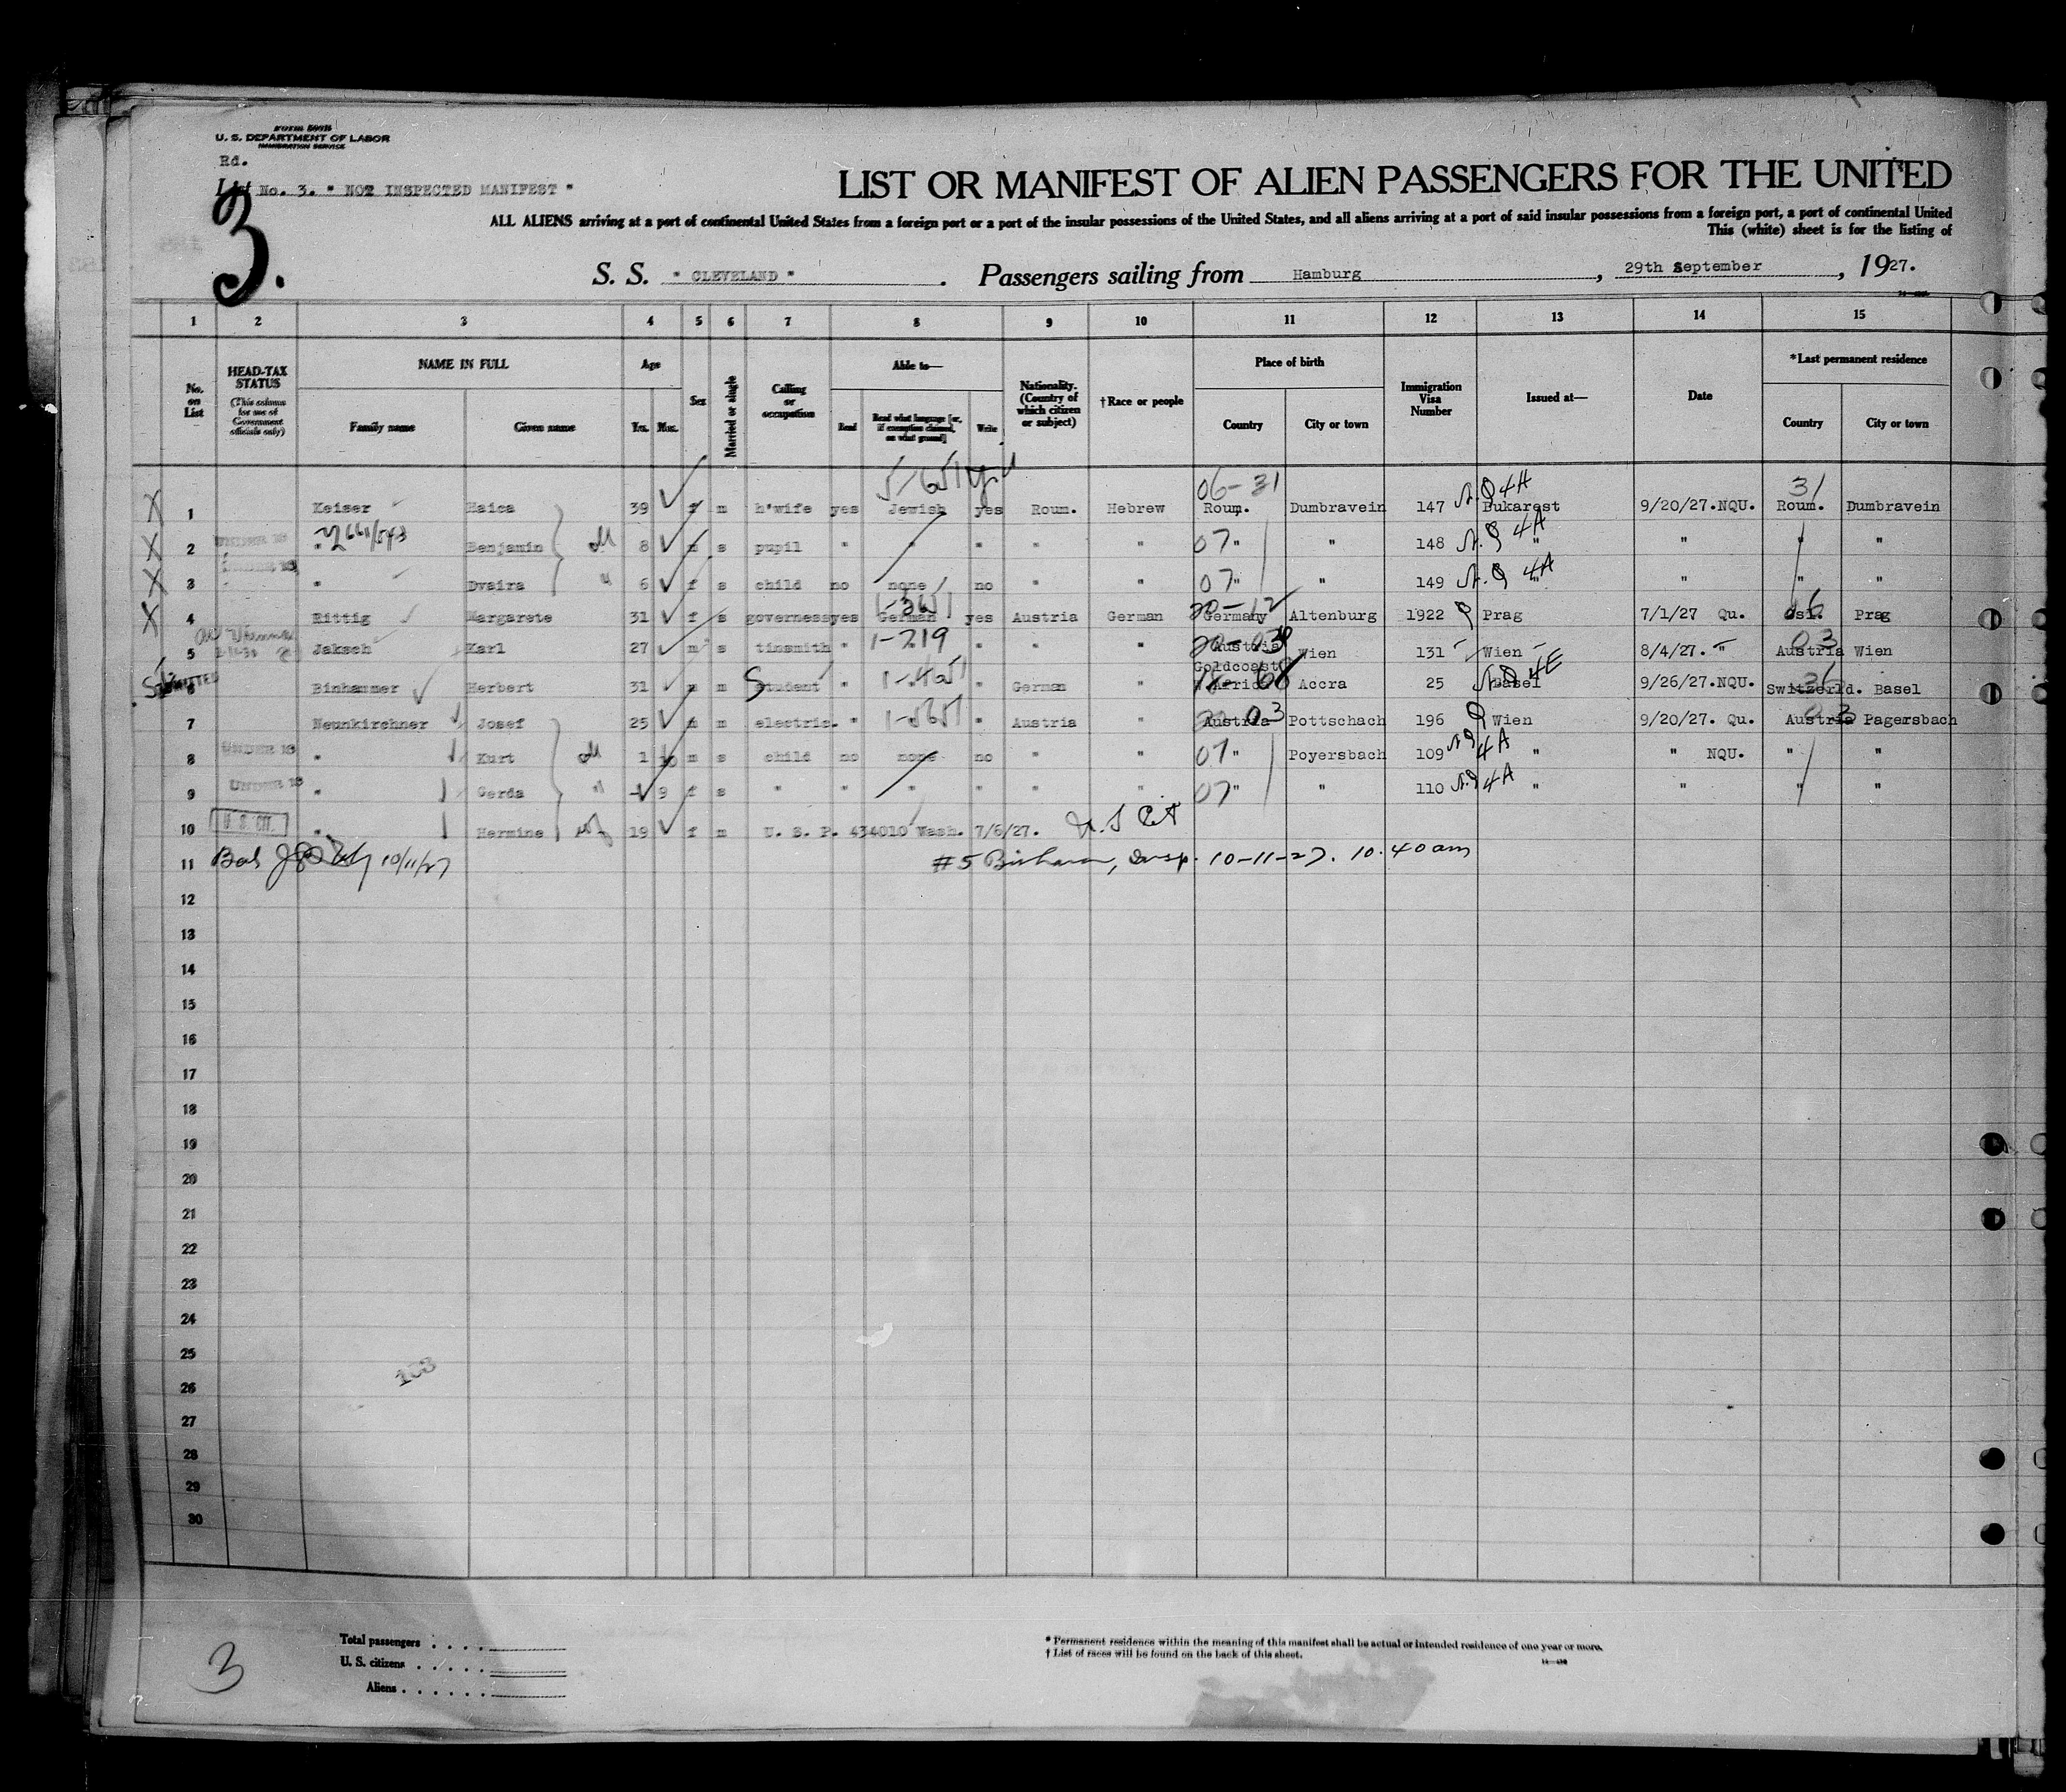 FORM 500B
U. S. DEPARTMENT OF LABOR
IMMIGRATION SERVICE
Rd.
List No. 3. " NOT INSPECTED MANIFEST "
3.
LIST OR MANIFEST OF ALIEN PASSENGERS FOR THE UNITED
ALL ALIENS arriving at a port of continental United States from a foreign port or a port of the insular possessions of the United States, and all aliens arriving at a port of said insular possessions from a foreign port, a port of continental United
This (white) sheet is for the listing of
S. S. " CLEVELAND " . Passengers sailing from Hamburg , 29th September , 1927.
1 2 3 4 5 6 7 8 9 10 11 12 13 14 15
No. on List
HEAD-TAX STATUS (This column for use of Government officials only)
NAME IN FULL Family name Given name
Age Yrs. Mos.
Sex
Married or single
Calling or occupation
Able to— Read Read what language [or, if exemption claimed, on what ground] Write
Nationality. (Country of which citizen or subject)
†Race or people
Place of birth Country City or town
Immigration Visa Number
Issued at—
Date
*Last permanent residence Country City or town
5-651 06-31 N.Q 4A 31
X 1 Keiser Haica 39 f m h'wife yes Jewish yes Roum. Hebrew Roum. Dumbravein 147 Bukarest 9/20/27.NQU. Roum. Dumbravein
X 2 UNDER 16 " Benjamin M 8 m s pupil " " " " " 07 " " 148 N.Q 4A " " " "
X 3 " Dvaira " 6 f s child no none no " " 07 " " 149 N.Q 4A " " " "
X 4 Rittig Margarete 31 f s governess yes German yes Austria German Germany Altenburg 1922 Q Prag 7/1/27 Qu. Prag
5 Jaksch Karl 27 m s tinsmith " 1-219 " " " Austria Wien 131 Wien 8/4/27. " Austria Wien
ADMITTED 6 Binhammer Herbert 31 m m student " " German " Goldcoast Africa Accra 25 Basel 9/26/27.NQU. Switzerld. Basel
7 Neunkirchner Josef 25 m m electric. " " Austria " Austria Pottschach 196 Q Wien 9/20/27. Qu. Austria Pagersbach
8 UNDER 16 " Kurt M 1 10 m s child no none no " " 07 " Poyersbach 109 NQ 4A " " NQU. " "
9 UNDER 16 " Gerda " 9 f s " " " " " " 07 " " 110 N.Q 4A " " " "
10 U. S. CIT. " Hermine 19 f m U. S. P. 434010 Wash. 7/6/27. U. S Cit
11 10/11/27 #5 Insp. 10-11-27. 10.40 am
12
13
14
15
16
17
18
19
20
21
22
23
24
25
26
27
28
29
30
3
Total passengers . . . .
U. S. citizens . . . . .
Aliens . . . . . .
* Permanent residence within the meaning of this manifest shall be actual or intended residence of one year or more.
† List of races will be found on the back of this sheet.